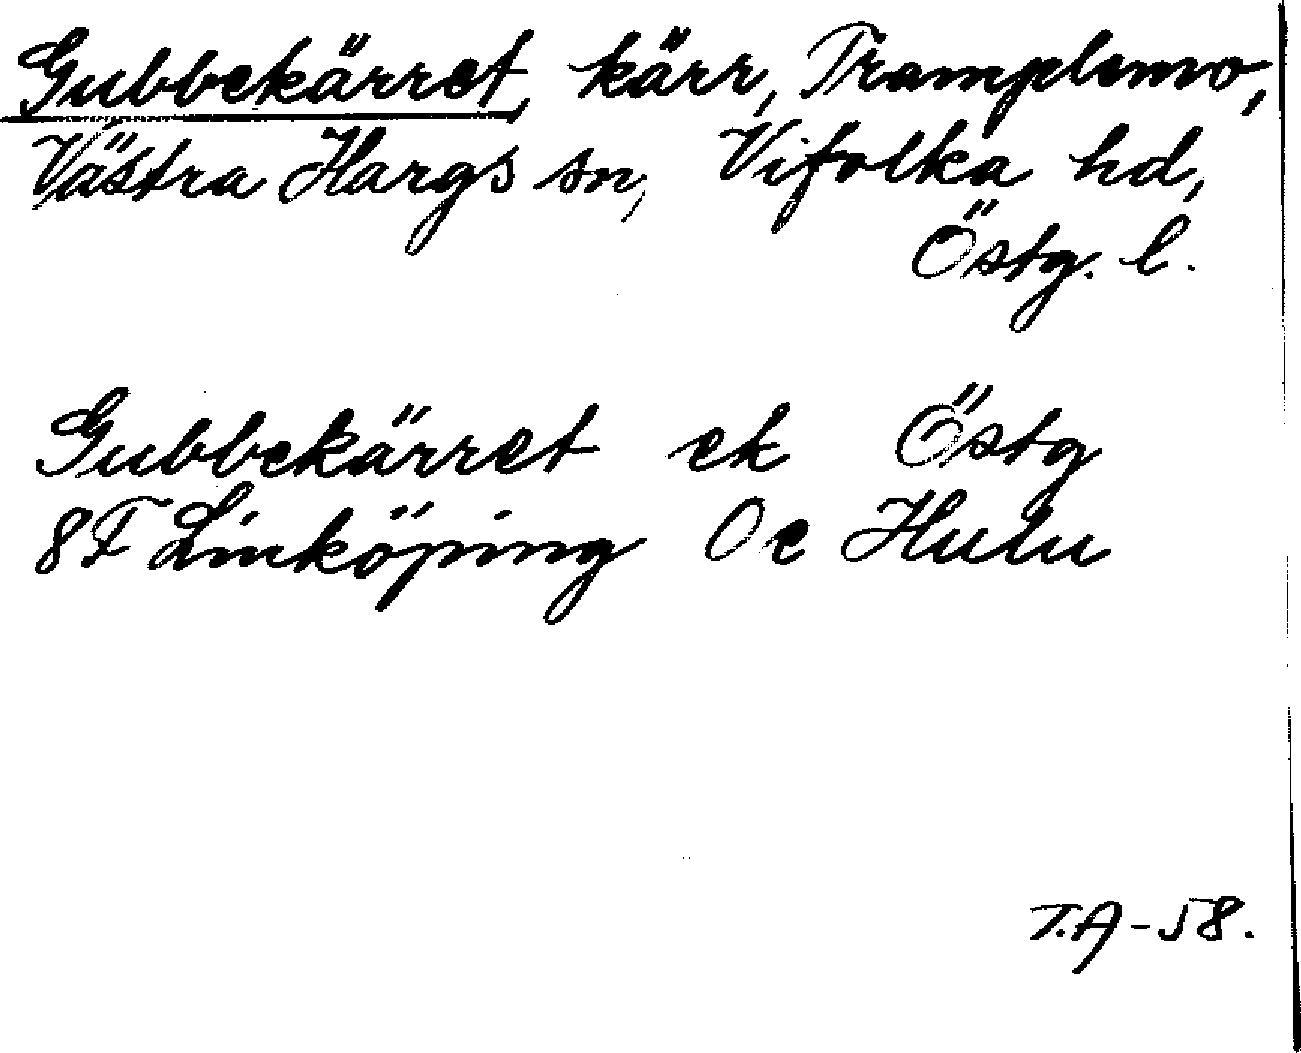 Gubbekärret, kärr, Tramplemo,
Västra Hargs sn, Vifolka hd,
Östg. l.
Gubbekärret ek Östg
8F Linköping Oc Hulu
T.A-58.